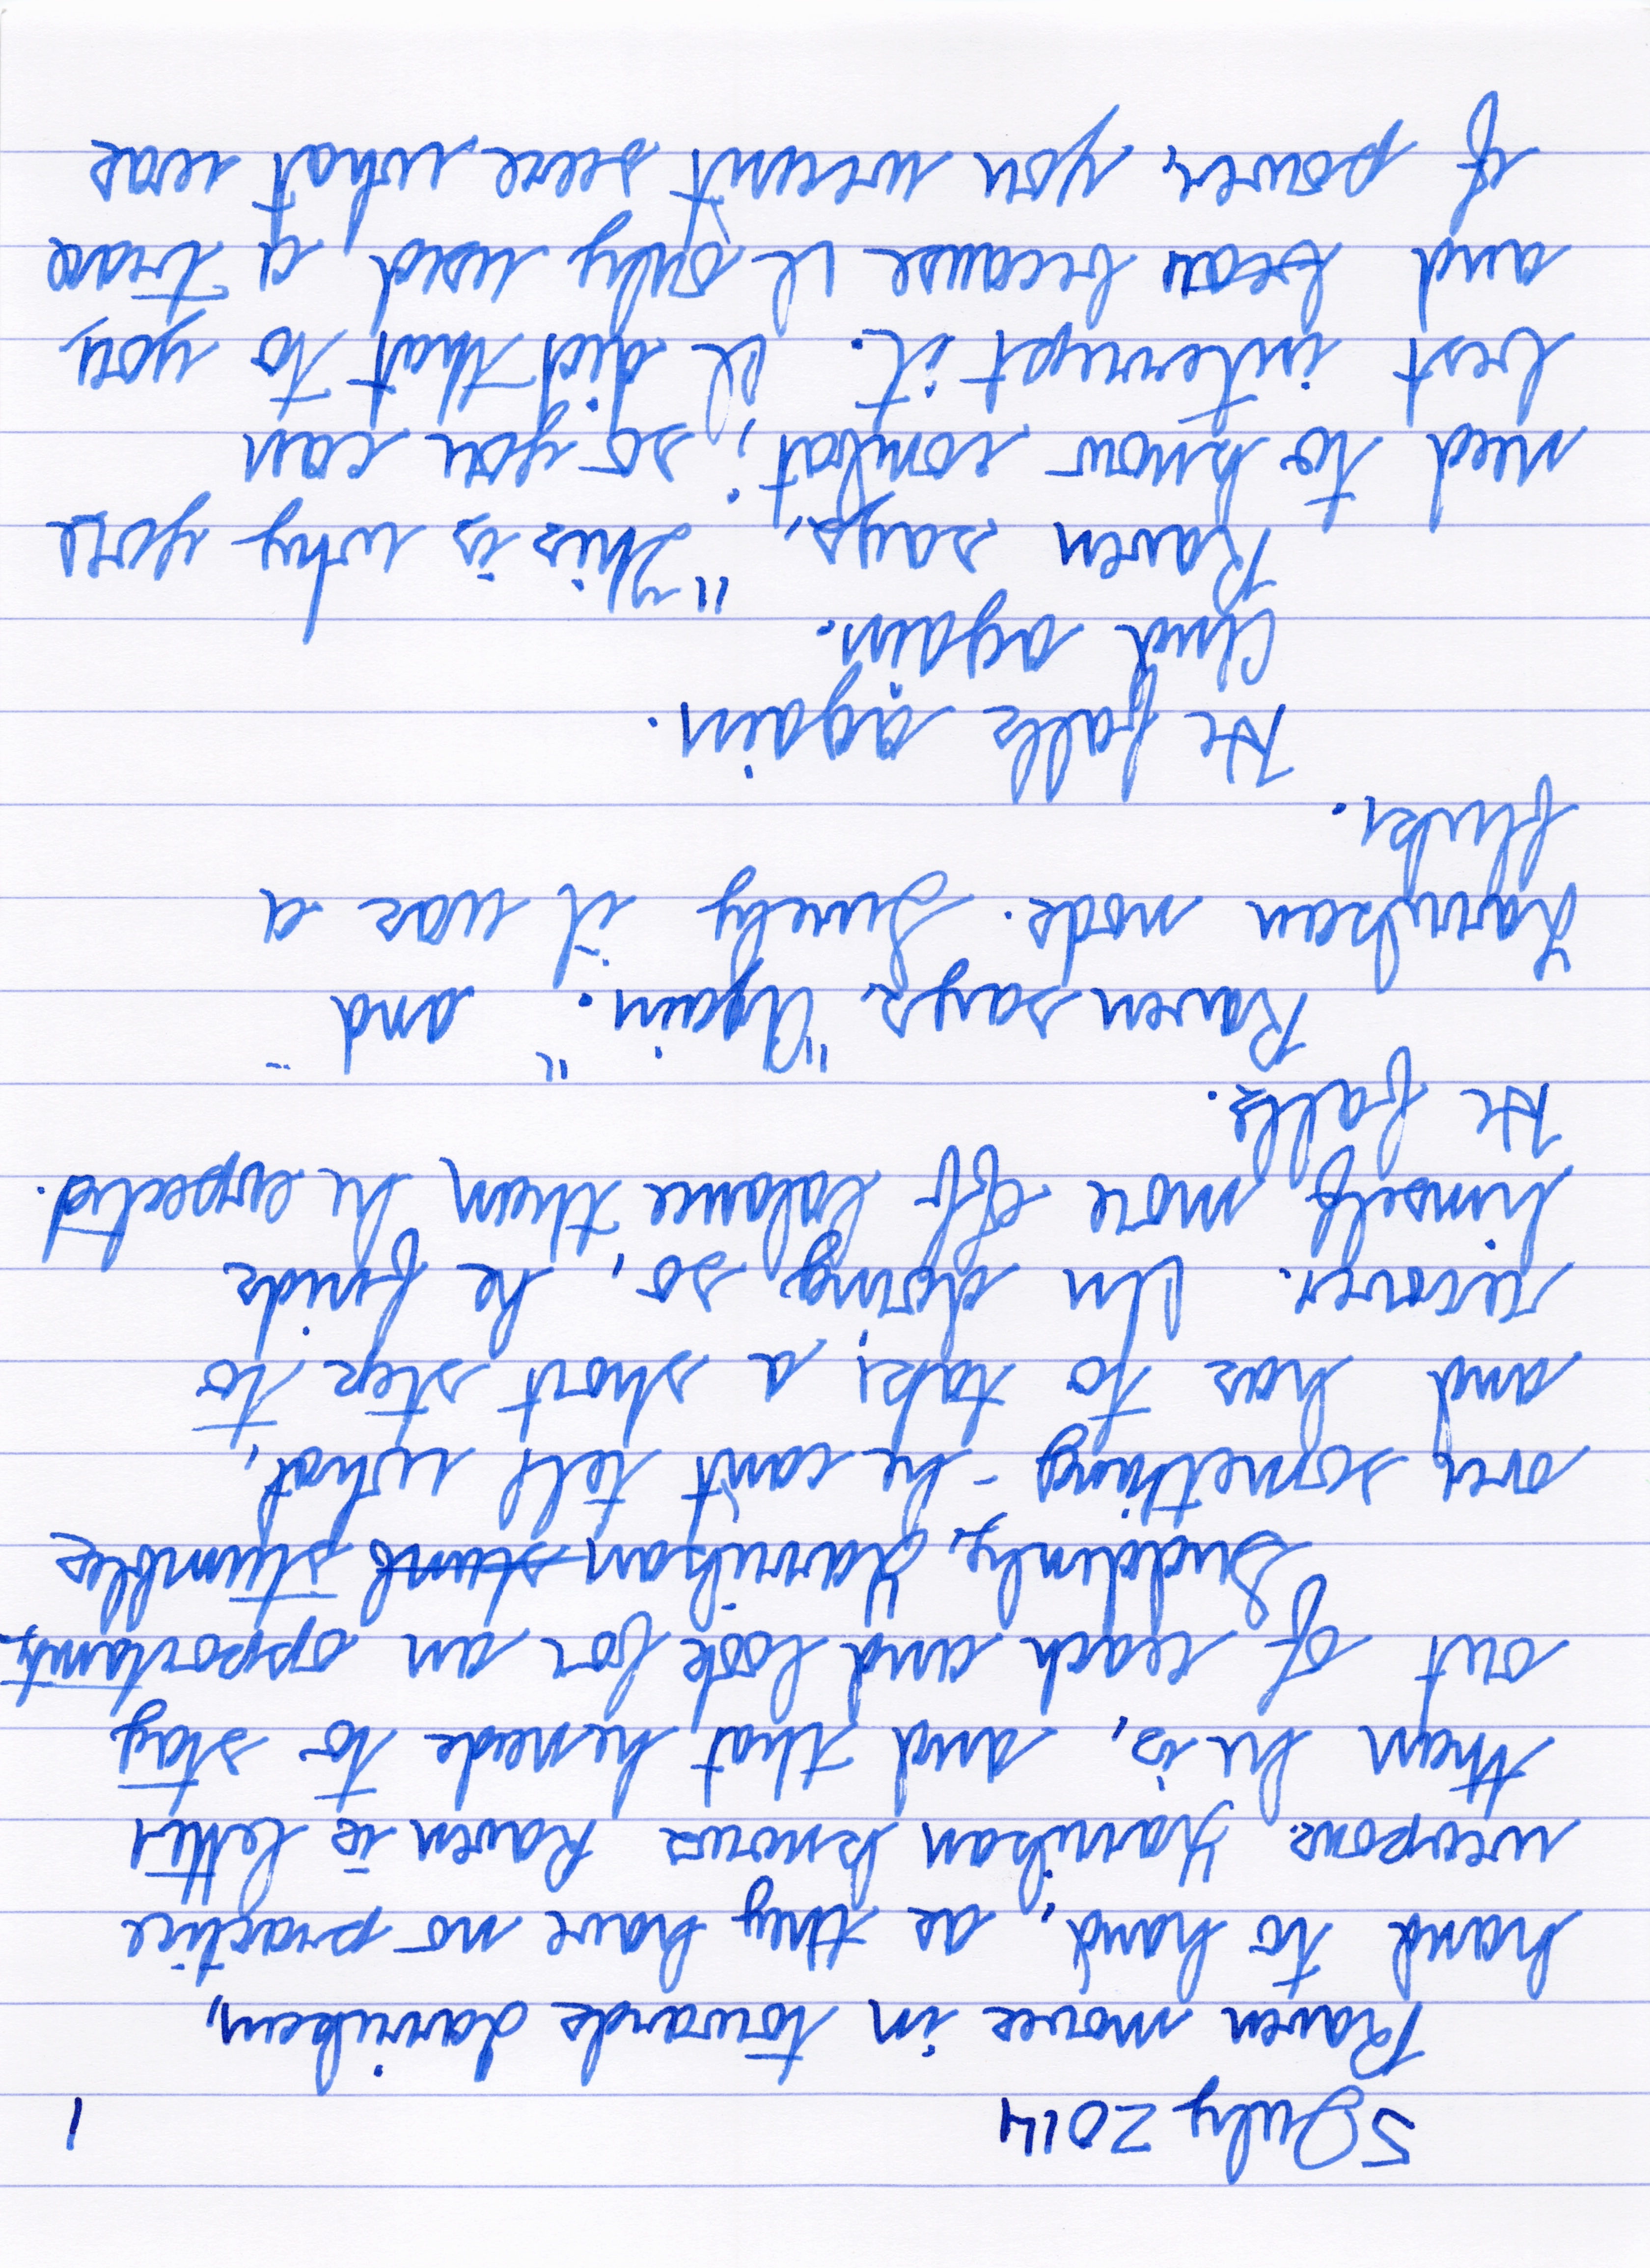 5 July 2014 1
Raven moves in towards Yarrikan,
hand to hand, as they have no practice
weapons. Yarrikan knows Raven is better
than he is, and that he needs to stay
out of reach and look for an opportunity.
Suddenly, Yarrikan stumb stumbles
over something - he can't tell what,
and has to take a short step to
recover. In doing so, he finds
himself more off balance than he expected.
He falls.
Raven says "Again." and
Yarrikan nods. Surely it was a
fluke.
He falls again.
And again.
Raven says, "This is why you
need to know combat; so you can
best interrupt it. I did that to you,
and because I only used a trace
of power, you weren't sure what was